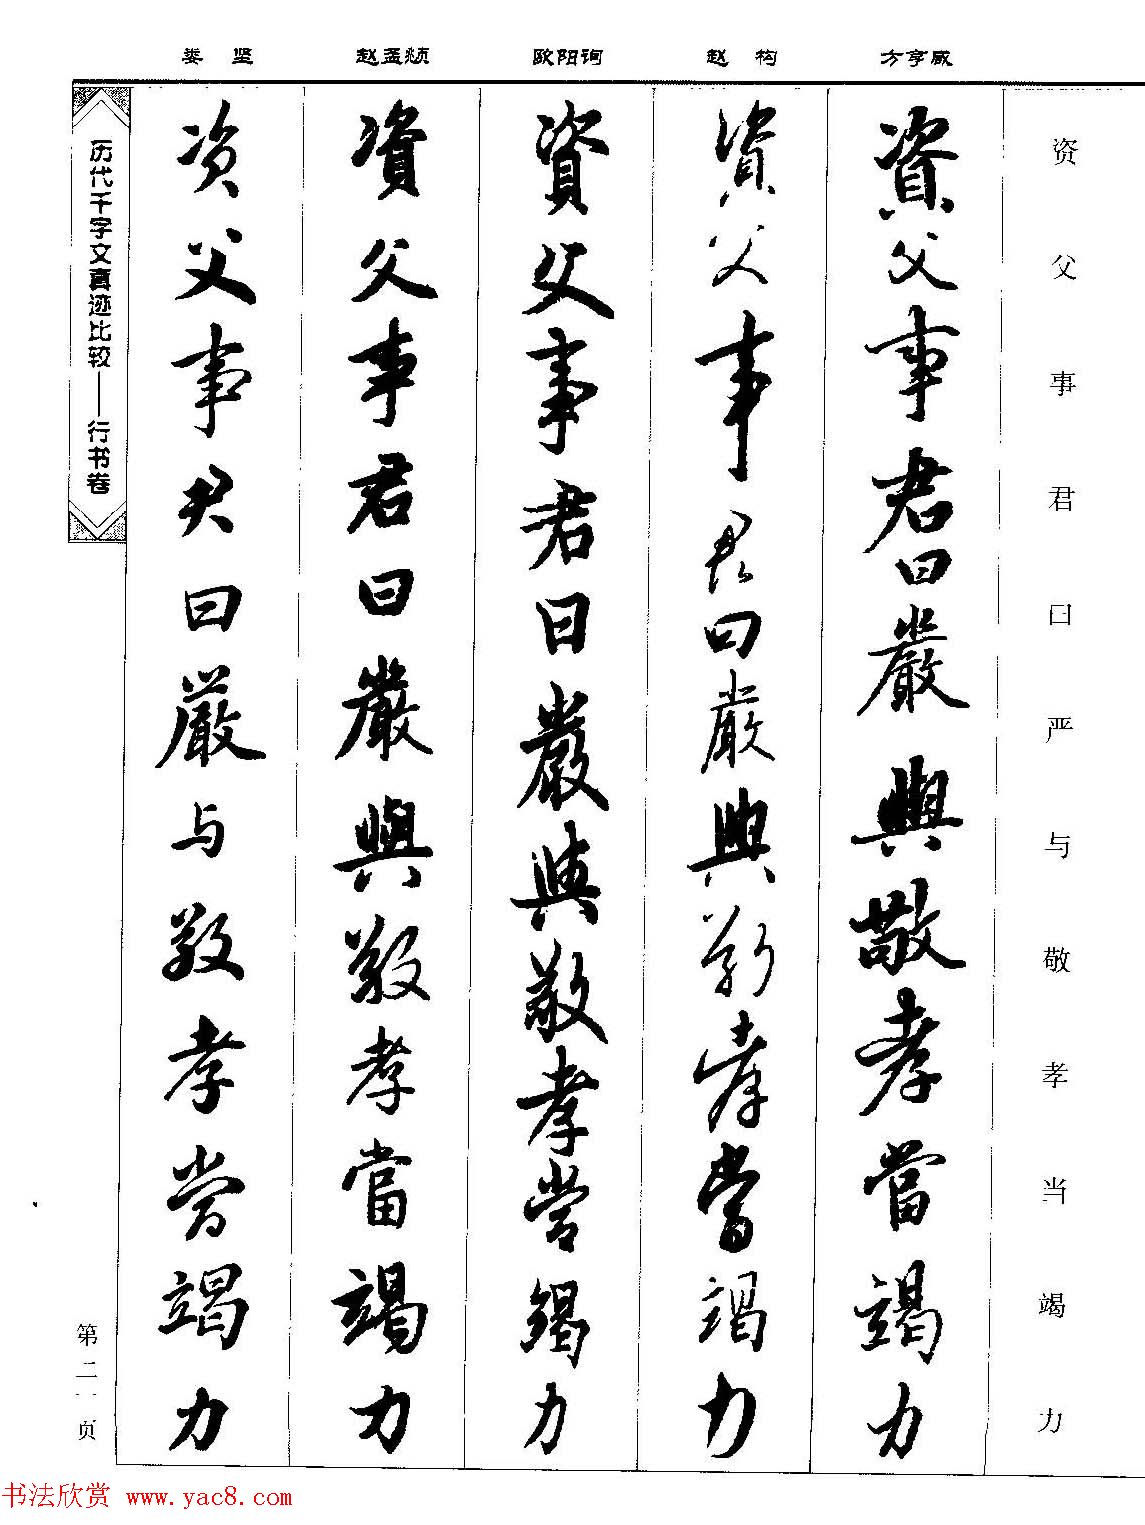 娄 坚
赵孟頫
欧阳询
赵 构
方亨咸
资父事君曰严与敬孝当竭力
資父事君曰嚴與敬孝當竭力
資父事君曰嚴與敬孝當竭力
資父事君曰嚴與敬孝當竭力
資父事君曰嚴與敬孝當竭力
资父事君曰嚴与敬孝當竭力
历代千字文真迹比较——行书卷
第二一页
书法欣赏 www.yac8.com